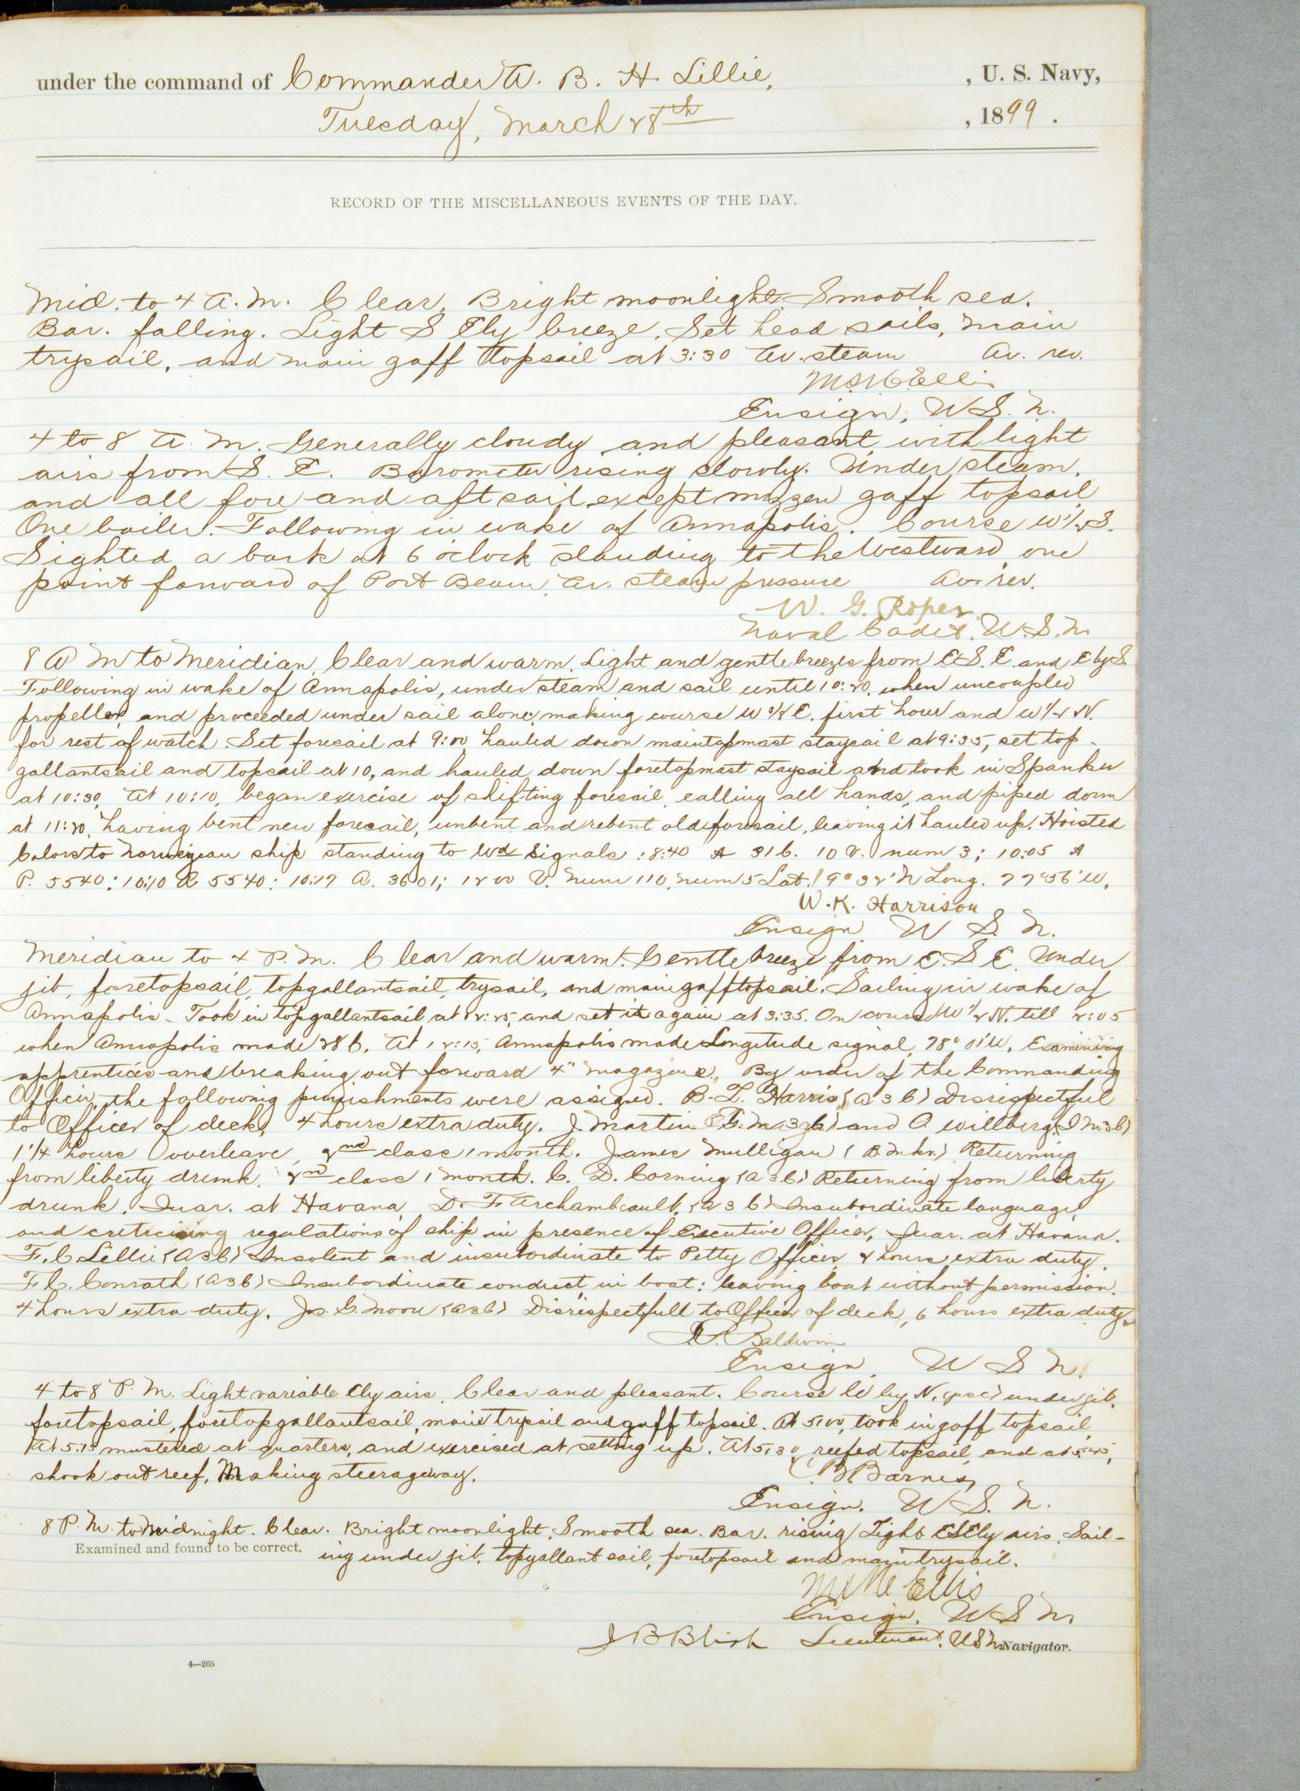 under the command of Commander A. B. H. Lillie, , U. S. Navy,
Tuesday, March 28th , 1899.
RECORD OF THE MISCELLANEOUS EVENTS OF THE DAY.
Mid. to 4 A.M. Clear, Bright moonlight. Smooth sea.
Bar. falling. Light S Ely breeze. Set head sails, main
trysail, and main gaff topsail at 3:30 Av. steam Av. rev.
Ellis
Ensign, U.S.N.
4 to 8 A.M. Generally cloudy and pleasant with light
airs from S. E. Barometer rising slowly. Under steam.
and all fore and aft sail except mizzen gaff topsail
One boiler. Following in wake of Annapolis. Course
Sighted a bark at 6 o'clock standing to the Westward one
point forward of Port Beam. Av. steam pressure Av. rev.
W. G. Roper
Naval Cadet. U.S.N
8 A M to Meridian Clear and warm. Light and gentle breezes from E.S.E and E by S
Following in wake of Annapolis, under steam and sail until 10:20, when uncoupled
propeller, and proceeded under sail alone, making course first hour and W 1/2 N.
for rest of watch. Set foresail at 9:00 hauled down maintopmast staysail at 9:35, set top-
gallantsail and topsail at 10, and hauled down foretopmast staysail and took in Spanker
at 10:30. At 10:10, began exercise of shifting foresail calling all hands, and piped down
at 11:20, having bent new foresail, unbent and rebent old foresail, leaving it hauled up. Hoisted
Colors to Norwegian ship standing to Wd. Signals: 8:40 A 316. 10 V. num 3; 10:05 A
P. 5540: 10:10 A 5540: 10:17 A. 3601; 1200 V. Num 110, num 5 Lat. 19° 32' N Long. 77° 56' W.
W. K. Harrison
Ensign U S. N.
Meridian to 4 P.M. Clear and warm. Gentle breeze from E. S E. Under
jib, foretopsail, topgallantsail, trysail, and main gaff topsail. Sailing in wake of
Annapolis. Took in topgallantsail at 12:25, and set it again at 3:35. On course W 1/2 N. till 2:05
when Annapolis made 286. At 12:15, Annapolis made Longitude signal, 78° 01' W. Examining
apprentices and breaking out forward 4" magazine. By order of the Commanding
Officer, the following punishments were assigned. B. L. Harris (A 3 C) Disrespectful
to Officer of deck, 4 hours extra duty. J. Martin and A Willberg
1 1/4 hours overleave, 2nd class 1 month. James Mulligan Returning
from liberty drunk. 2nd class 1 month. C. D. Corning (A 3 C) Returning from liberty
drunk. Quar. at Havana. D. F. Archambeault. (A 3 C) Insubordinate language,
and criticising regulations of ship in presence of Executive Officer, Quar. at Havana.
F. C Lellie (A3C) Insolent and insubordinate to Petty Officer 4 hours extra duty.
F. L. Conrath (A3C) Insubordinate conduct in boat: leaving boat without permission.
4 hours extra duty. Jos G. Moon (A3C) Disrespectfull to Officer of deck, 6 hours extra duty.
Baldwin
Ensign, U S N.
4 to 8 P.M. Light variable Ely airs. Clear and pleasant. Course W by N. (psc) under jib,
foretopsail, foretopgallantsail, main trysail and gaff topsail. At 5:00, took in gaff topsail,
At 5:15 mustered at quarters, and exercised at setting up. At 5:30, reefed topsail, and at 5:45,
shook out reef. Making steerageway.
Barnes
Ensign. U S. N.
8 P.M. to Midnight. Clear. Bright moonlight, Smooth sea. Bar. rising Light ESEly airs. Sail-
Examined and found to be correct. ing under jib, topgallant sail, foretopsail and main trysail.
Ellis
Ensign, U S N.
J B Blish Lieutenant, USN Navigator.
4—265